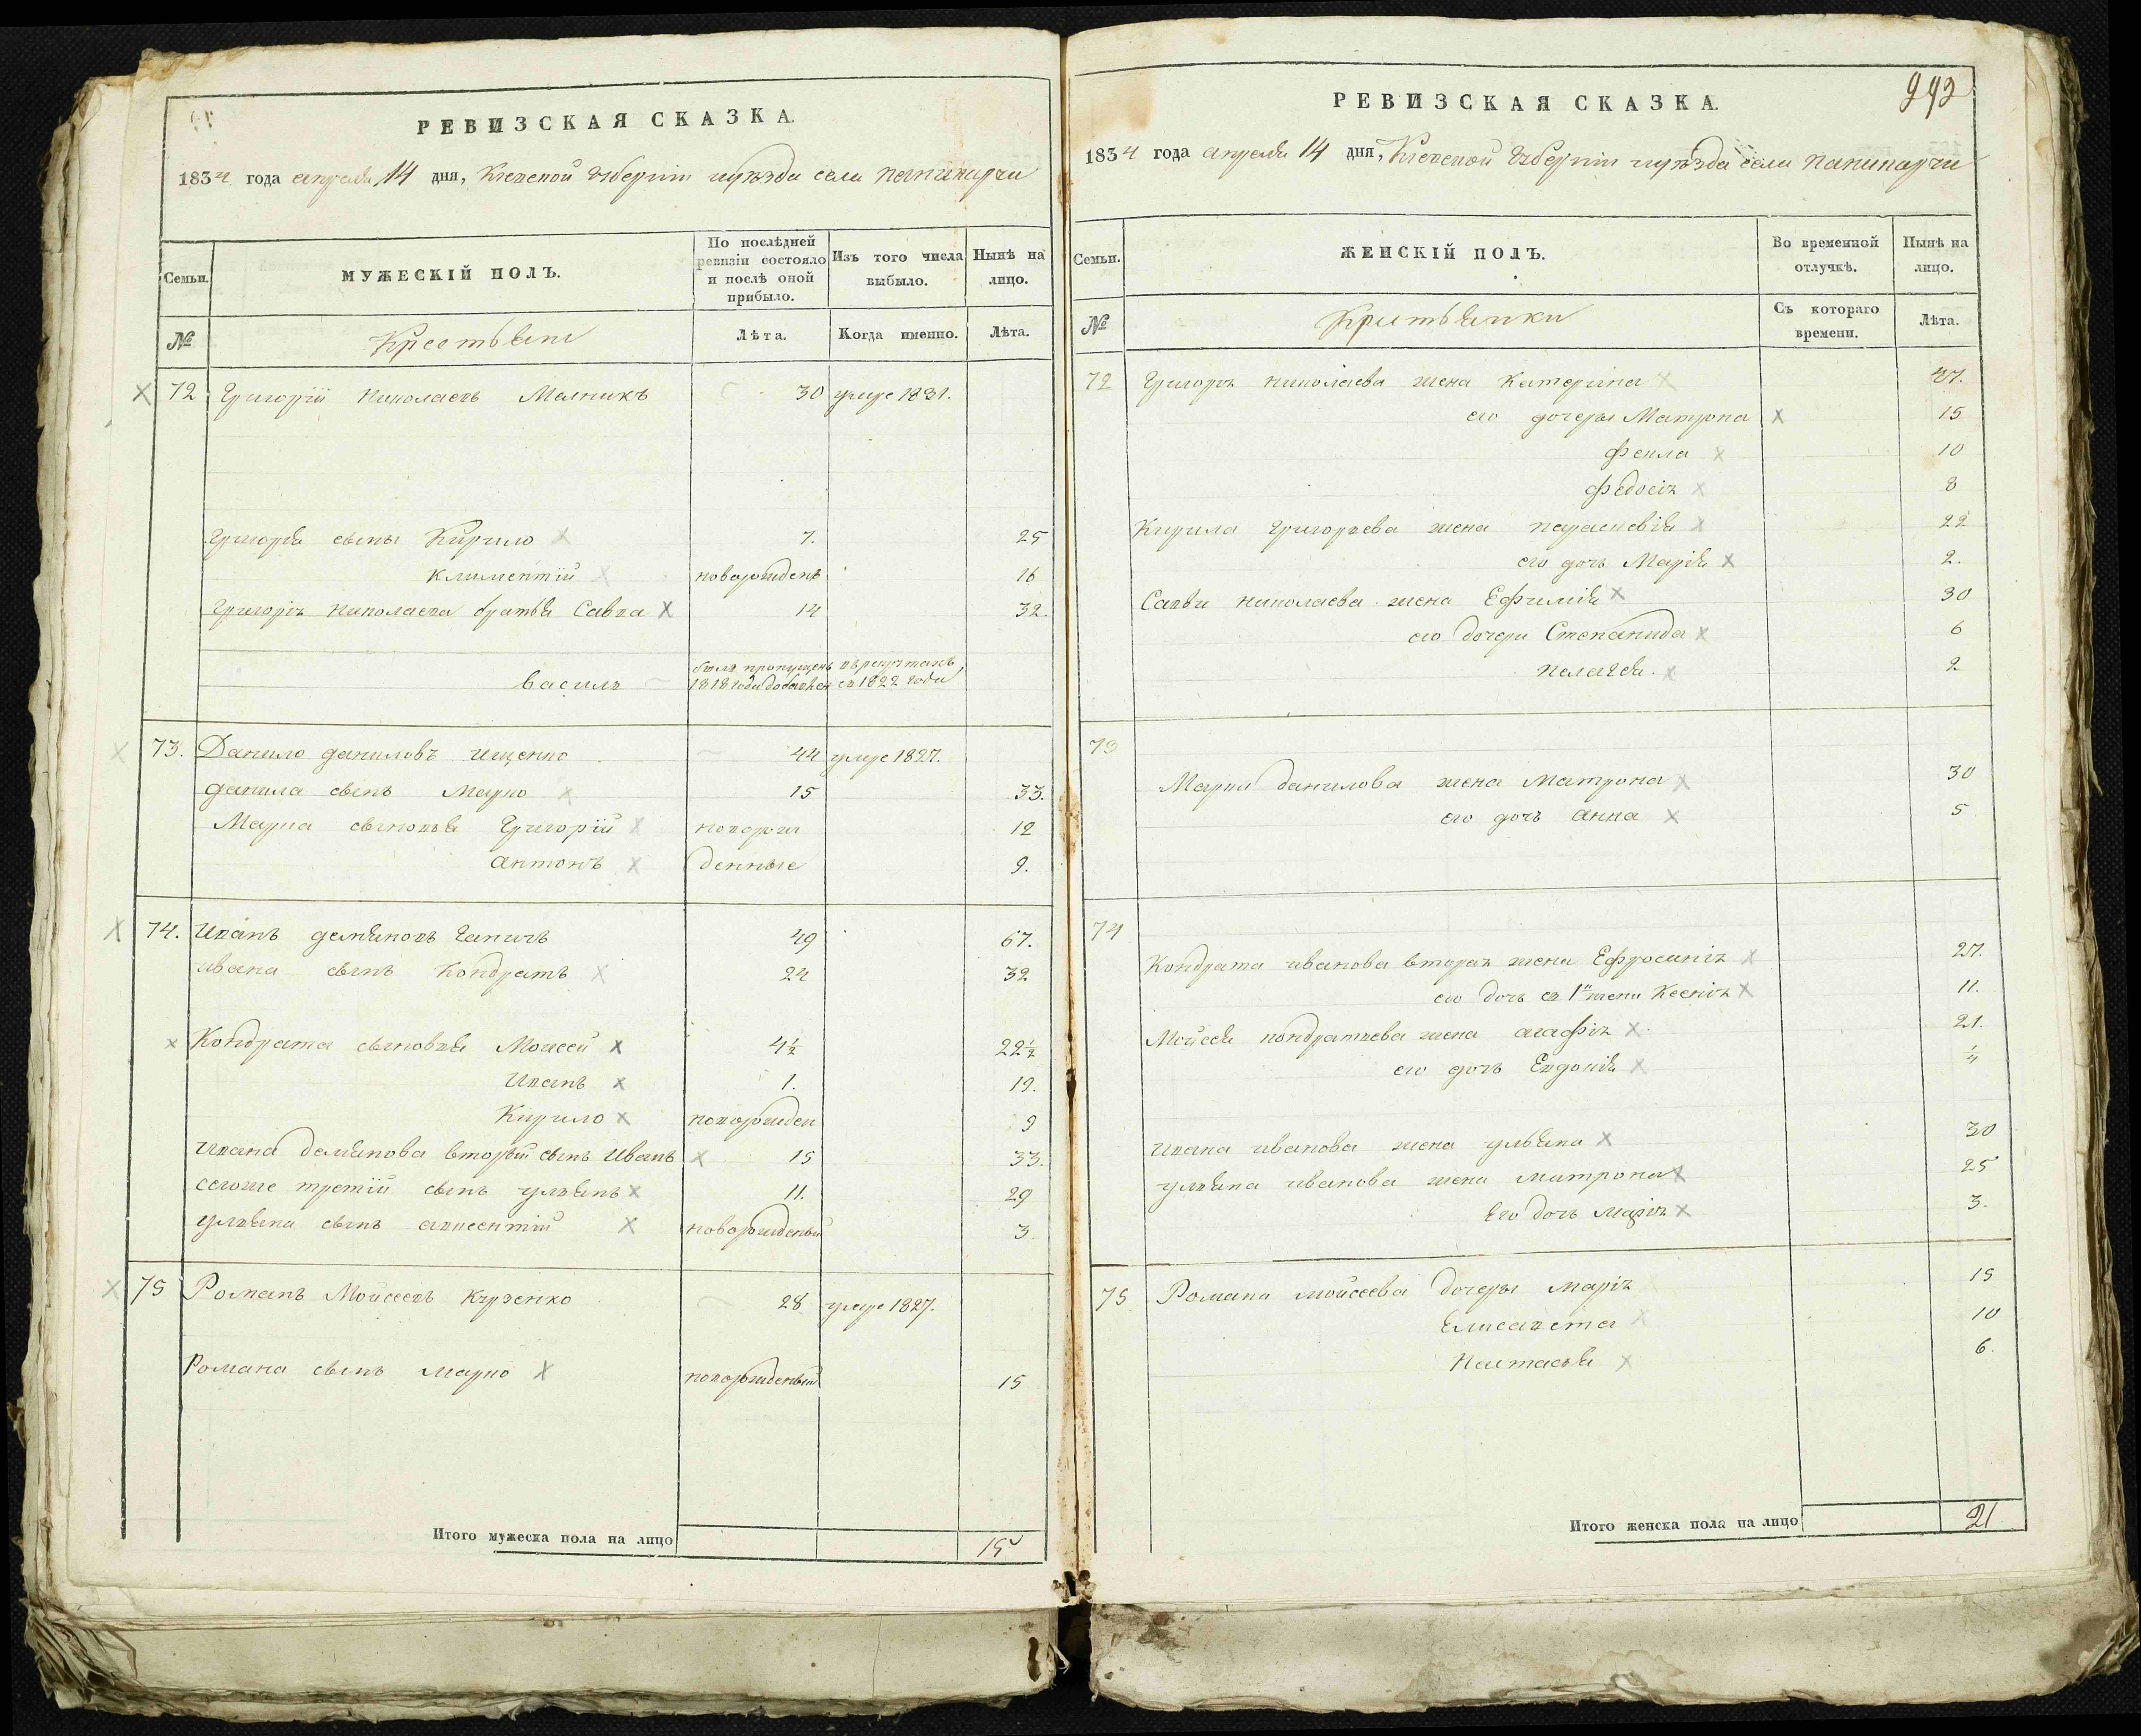 РЕВИЗСКАЯ СКАЗКА.
1834 года апреля 14 дня, Кіевской Губерніи и уѣзда села
Семьи.
МУЖЕСКІЙ ПОЛЪ.
По послѣдней ревизіи состояло и послѣ оной прибыло.
Изъ того числа выбыло.
Нынѣ на лицо.
№
Крестьяне
Лѣта.
Когда именно.
Лѣта.
72 Григорій Николаевъ Мелникъ 30 умре 1831.
Григорія сыны Кирило 7. 25
Климентій новорожденъ 16
Григорія Николаева братья Савва 14 32.
Василь былъ пропущенъ
1818 года добавлен съ 1822 года
73. Данило Даниловъ Ищенко 44 умре 1827.
Данила сынъ Марко 15 33.
Марка сыновья Григорій новорож 12
Антонъ денные 9.
74. Иванъ Демяновъ 49 67.
Ивана сынъ Кондратъ 24 32
Кондрата сыновья Моисей 4½ 22½
Иванъ 1. 19.
Кирило новорожден 9
Ивана Демянова вторый сынъ Иванъ 15 33.
его же третій сынъ Улянъ 11. 29
Уляна сынъ новорожденый 3
75 Романъ Мойсеевъ Кузенко 28 умре 1827.
Романа сынъ Марко новорожденый 15
Итого мужеска пола на лицо 15
РЕВИЗСКАЯ СКАЗКА.
1834 года апреля 14 дня, Кіевской Губерніи и уѣзда села
Семьи.
ЖЕНСКІЙ ПОЛЪ.
Во временной отлучкѣ.
Нынѣ на лицо.
№
Крестьянки
Съ котораго времени.
Лѣта.
72 Григорія Николаева жена Катерина 47.
его дочеры Матрона 15
Фекла 10
Федосія 8
Кирила Григорьева жена Параскевія 22
его дочь Марія 2.
Савви Николаева жена Ефимія 30
его дочери Степанида 6
Пелагея. 2
73
Марка Данилова жена Матрона 30
его дочь Анна 5
74
Кондрата Иванова вторая жена Ефросинія 27.
его дочь съ 1й жены Ксенія 11.
Мойсея Кондратьева жена Агафія 21.
его дочь Евдокія ¼
Ивана Иванова жена Ульяна 30
Уляна Иванова жена Матрона 25
Его дочь Марія 3.
75 Романа Мойсеева дочеры Марія 15
Елисавета 10
Настасья 6.
Итого женска пола на лицо 21